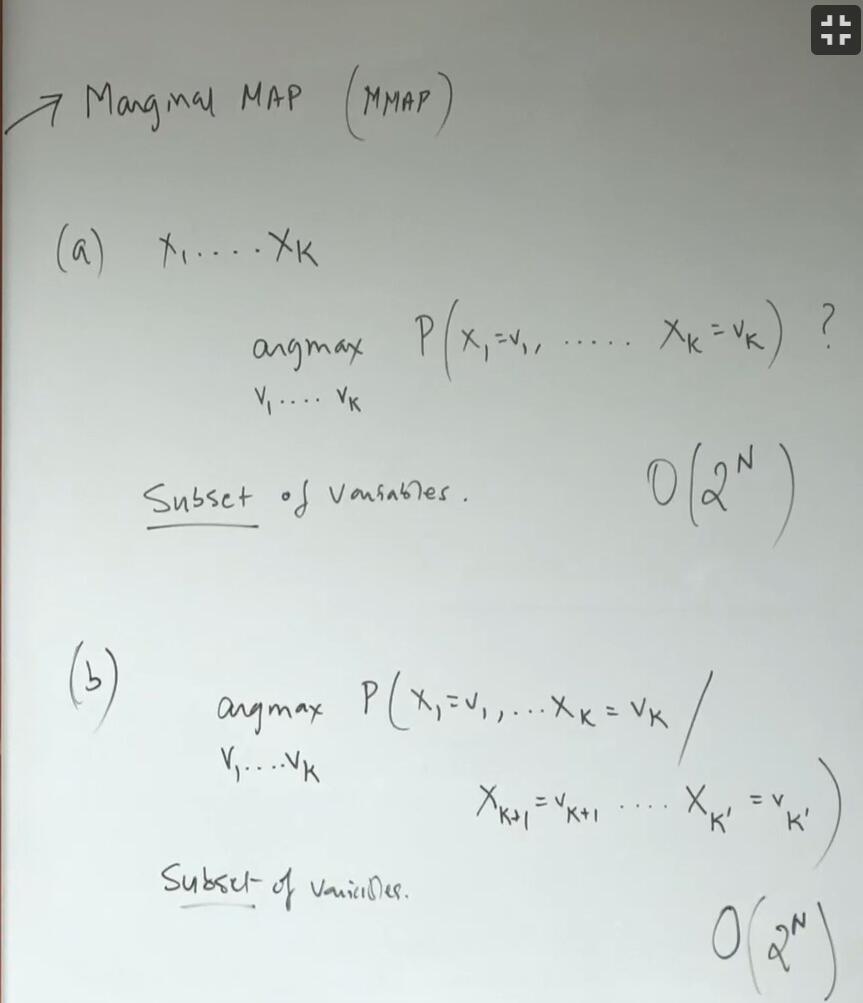 → Marginal MAP (MMAP)
(a) X₁ .... X_K
argmax P(X₁=v₁, ..... X_K=v_K) ?
v₁ .... v_K
Subset of variables.
O(2^N)
(b) argmax P(X₁=v₁, ... X_K=v_K /
v₁ .... v_K
X_{K+1}=v_{K+1} .... X_{K'}=v_{K'})
Subset of variables.
O(2^N)